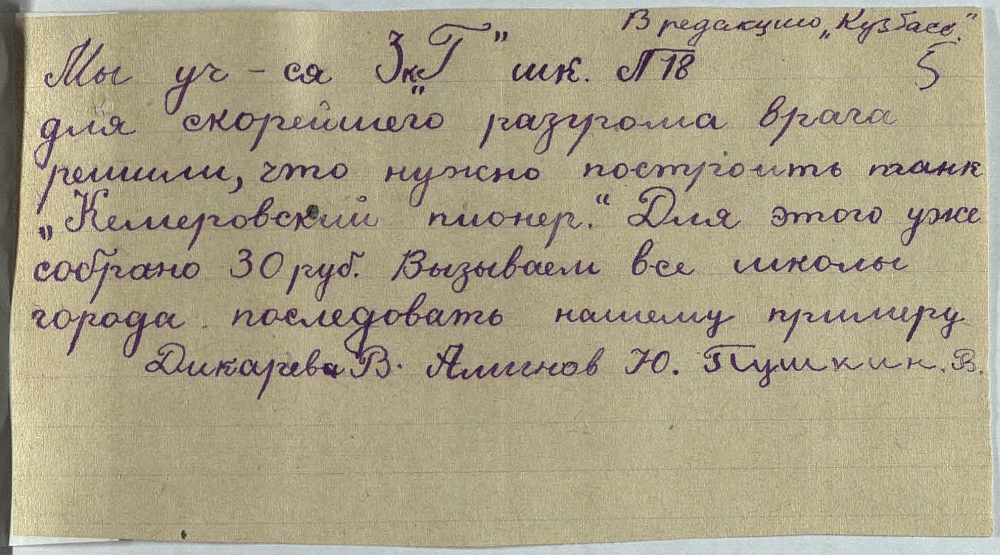 В редакцию „Кузбасс".
Мы уч-ся 3 кл. „Г" шк. №18
5
для скорейшего разгрома врага
решили, что нужно построить танк
„Кемеровский пионер." Для этого уже
собрано 30 руб. Вызываем все школы
города последовать нашему примеру
Дикарева В. Аминов Ю. Пушкин. В.